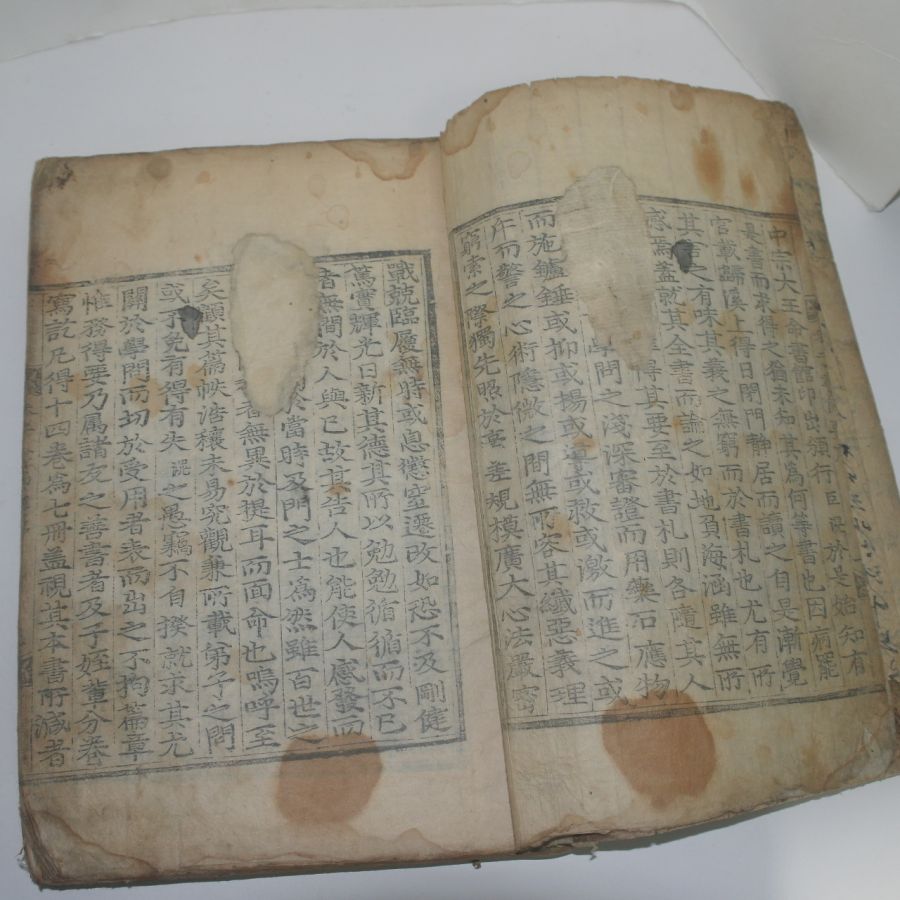 中宗大王命書館印出頒行臣滉於是始知有
是書而求得之猶未知其為何等書也因病罷
官載歸溪上得日閉門靜居而讀之自是漸覺
其言之有味其義之無窮而於書札也尤有所
感焉盖就其全書而論之如地負海涵雖無所
得其要至於書札則各隨其人
學問之淺深審證而用藥石應物
而施鑪錘或抑或揚或導或救或激而進之或
斥而警之心術隱微之間無所容其纖惡義理
窮索之際獨先照於毫差規模廣大心法嚴密
戰兢臨履無時或息懲窒遷改如恐不及剛健
篤實輝光日新其德其所以勉勉循循而不已
者無間於人與己故其告人也能使人感發而
於當時及門之士爲然雖百世之
者無異於提耳而面命也嗚呼至
矣顧其篇帙浩穰未易究觀兼所載弟子之問
或不免有得有失滉之愚竊不自揆就求其尤
關於學問而切於受用者表而出之不拘篇章
惟務得要乃属諸友之善書者及子姪輩分卷
寫訖凡得十四卷爲七冊盖視其本書所減者